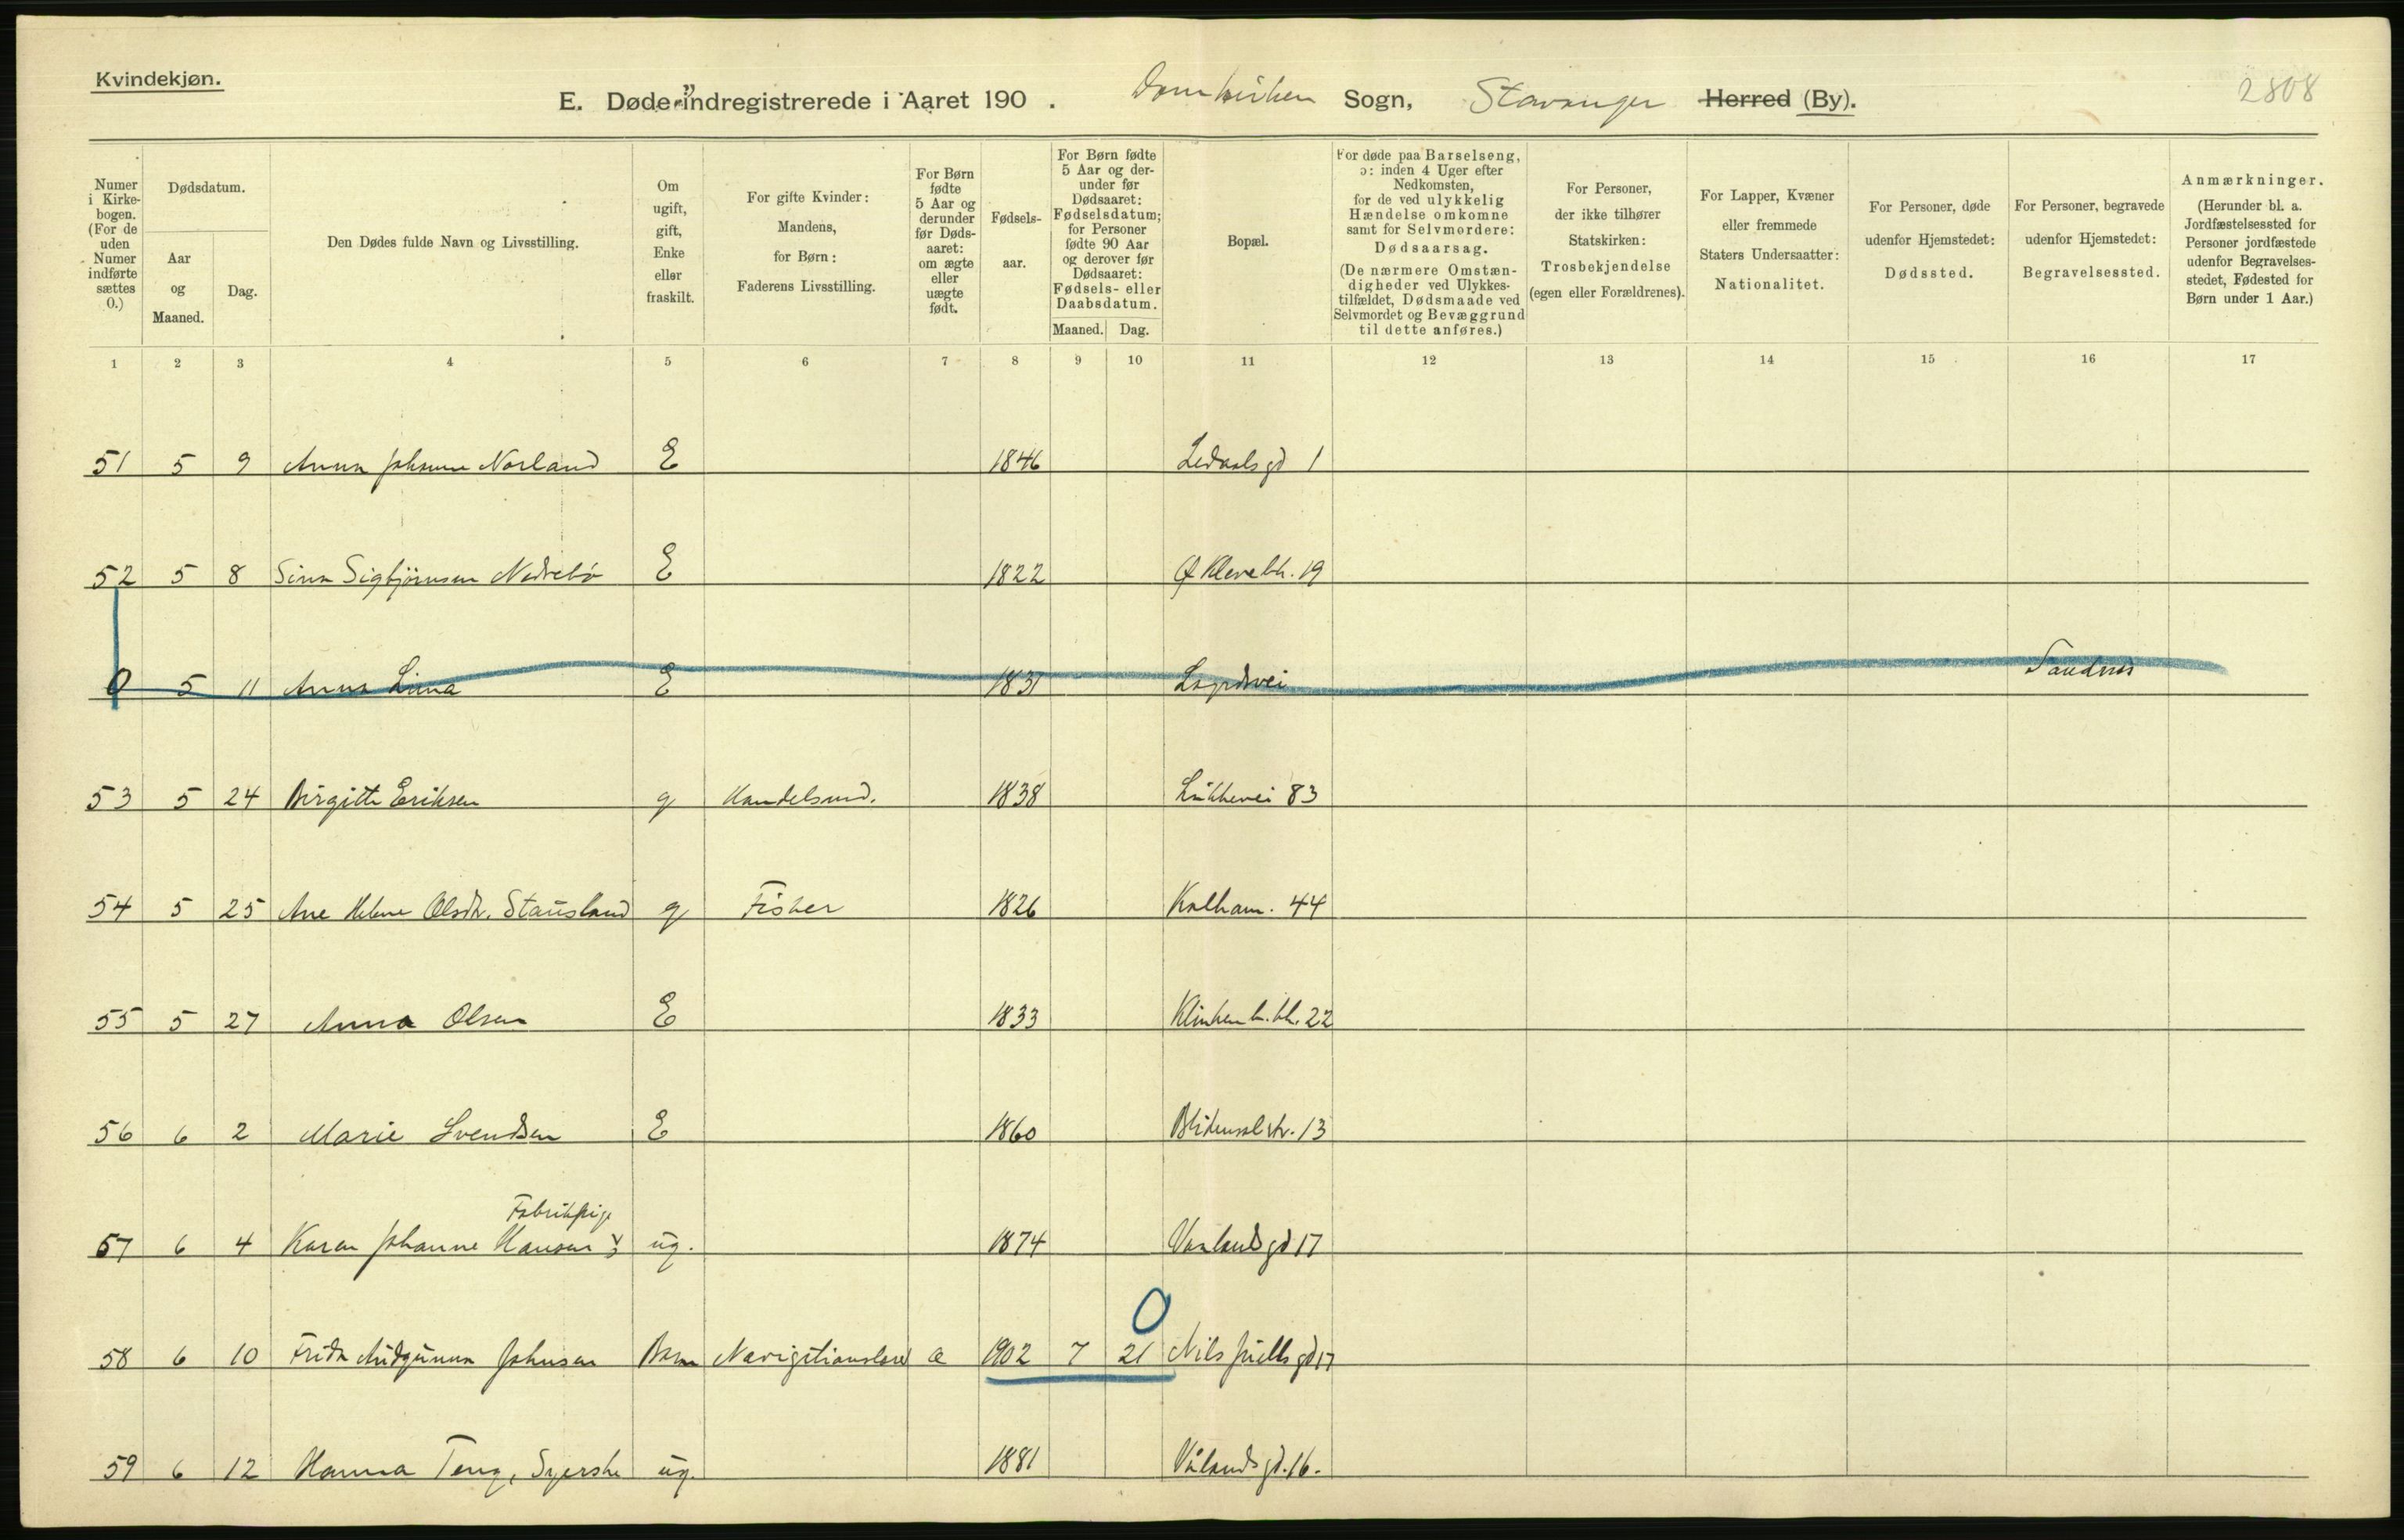 Kvindekjøn.
E. Døde indregistrerede i Aaret 190 . Domkirken Sogn, Stavanger Herred (By). 2808
Numer i Kirkebogen. (For de uden Numer indførte sættes 0.)
Dødsdatum.
Aar og Maaned.
Dag.
Den Dødes fulde Navn og Livsstilling.
Om ugift, gift, Enke eller fraskilt.
For gifte Kvinder: Mandens, for Børn: Faderens Livsstilling.
For Børn fødte 5 Aar og derunder før Dødsaaret: om ægte eller uægte født.
Fødselsaar.
For Børn fødte 5 Aar og derunder før Dødsaaret: Fødselsdatum; for Personer fødte 90 Aar og derover før Dødsaaret: Fødsels- eller Daabsdatum.
Maaned. Dag.
Bopæl.
For døde paa Barselseng, ɔ: inden 4 Uger efter Nedkomsten, for de ved ulykkelig Hændelse omkomne samt for Selvmordere: Dødsaarsag. (De nærmere Omstændigheder ved Ulykkestilfældet, Dødsmaade ved Selvmordet og Bevæggrund til dette anføres.)
For Personer, der ikke tilhører Statskirken: Trosbekjendelse (egen eller Forældrenes).
For Lapper, Kvæner eller fremmede Staters Undersaatter: Nationalitet.
For Personer, døde udenfor Hjemstedet: Dødssted.
For Personer, begravede udenfor Hjemstedet: Begravelsessted.
Anmærkninger. (Herunder bl. a. Jordfæstelsessted for Personer jordfæstede udenfor Begravelsesstedet, Fødested for Børn under 1 Aar.)
1 2 3 4 5 6 7 8 9 10 11 12 13 14 15 16 17
51 5 9 Anna Johanne Norland E 1846 Ledaalsgd 1
52 5 8 Sina Sigbjörnsen Nedrebö E 1822 Ø Kleveb. 19
0 5 11 Anna Lima E 1831 Sandnes
53 5 24 Birgitte Eriksen g Handelsmd. 1838 Lükkevei 83
54 5 25 Ane Helene Olsdtr. Stausland g Fisker 1826 Kalham. 44
55 5 27 Anna Olsen E 1833 22
56 6 2 Marie Svendsen E 1860 Blidensolstr. 13
Fabrikpige
57 6 4 Karen Johanne Hansen ug. 1874 Vaalandsgd 17
0
58 6 10 Frida Johnsen Barn Navigationslærer æ 1902 7 21 Nils Juellsgd 17
59 6 12 Hanna Teng, Syerske ug. 1881 Vålandsgd. 16.